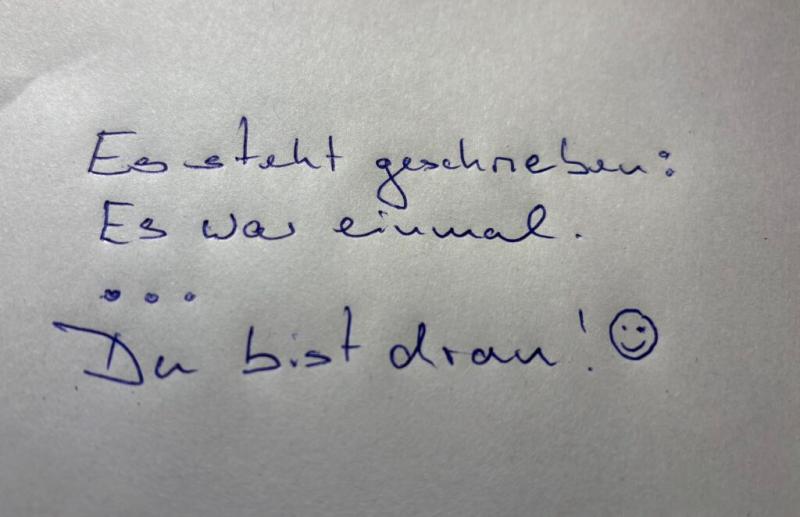 Es steht geschrieben:
Es war einmal.
...
Du bist dran! ☺